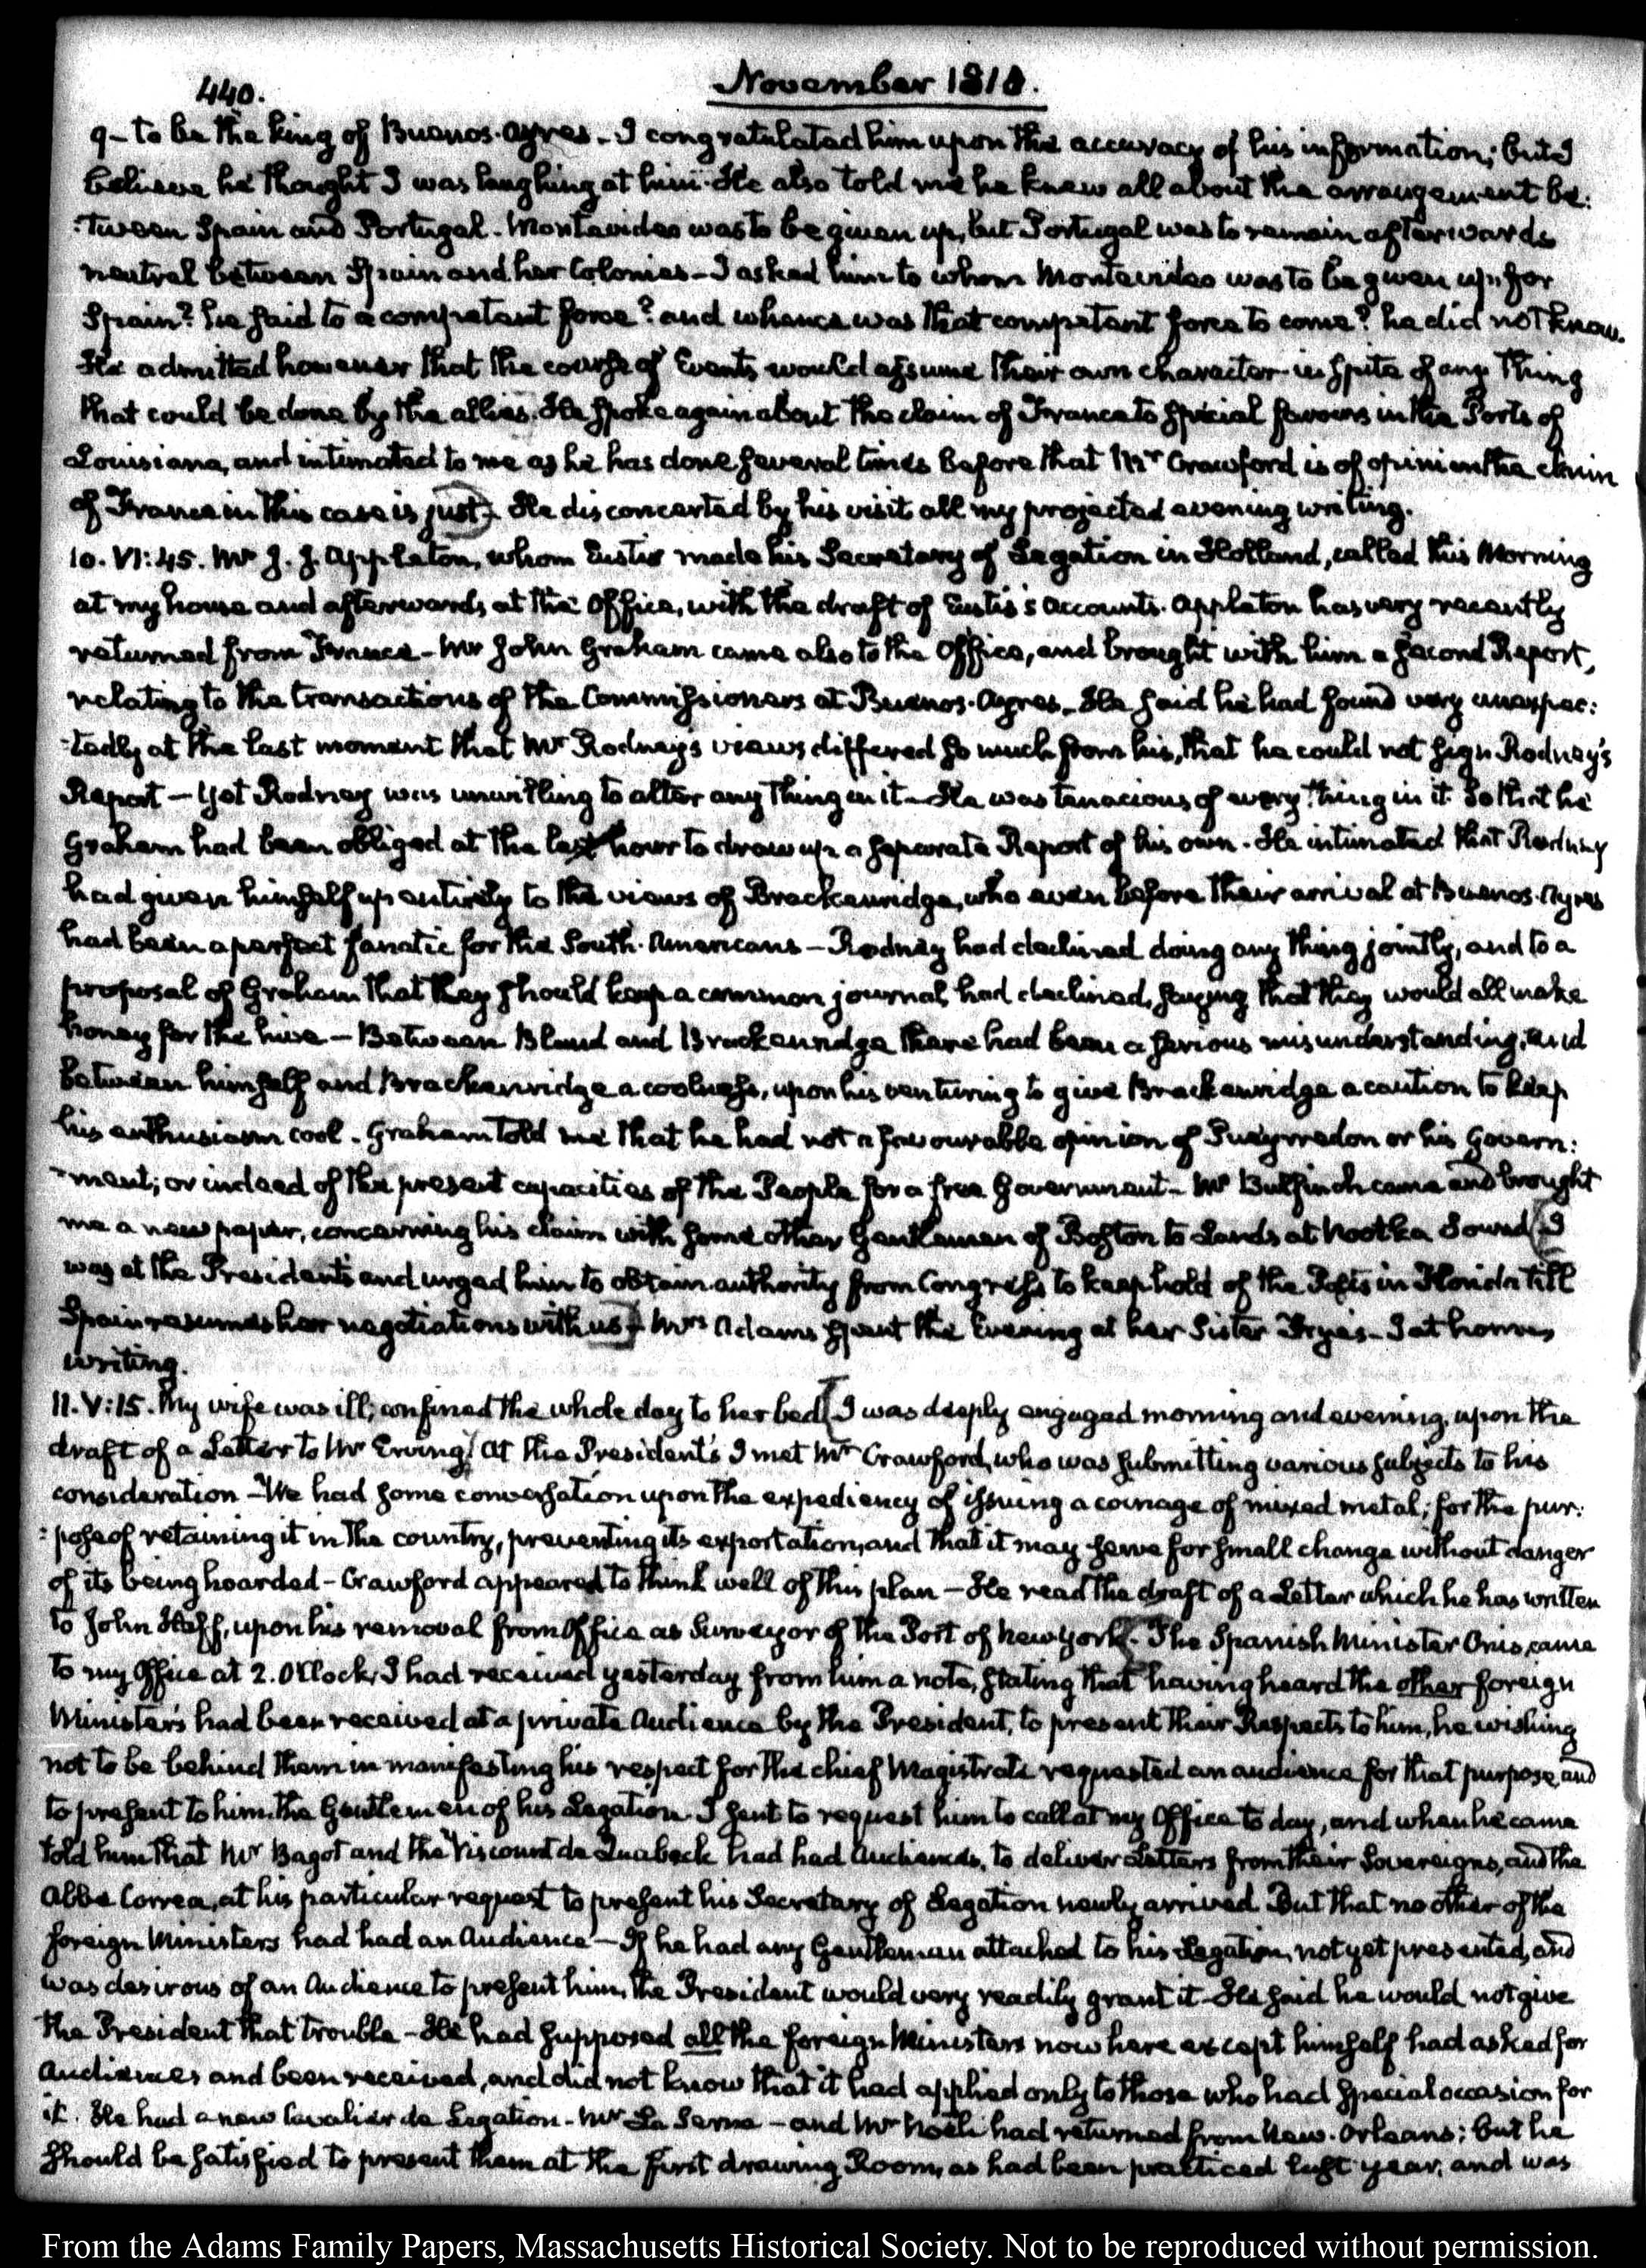 440.
November 1818.
9- to be the king of Buenos-Ayres - I congratulated him upon the accuracy of his information; but I
believe he thought I was laughing at him. He also told me he knew all about the arrangement be:
:tween Spain and Portugal. Montevideo was to be given up, but Portugal was to remain afterwards
neutral between Spain and her Colonies - I asked him to whom Montevideo was to be given up for
Spain? he said to a competent force? and whence was that competent force to come? he did not know.
He admitted however that the course of Events would assume their own character in spite of any thing
that could be done by the allies. He spoke again about the claim of France to special favours in the Ports of
Louisiana, and intimated to me as he has done several times before that Mr Crawford is of opinion the claim
of France in this case is just. He disconcerted by his visit all my projected evening writing.
10. VI:45. Mr J. J. Appleton, whom Eustis made his Secretary of Legation in Holland, called this Morning
at my house and afterwards at the Office, with the draft of Eustis's accounts. Appleton has very recently
returned from France - Mr John Graham came also to the Office, and brought with him a second Report,
relating to the transactions of the Commissioners at Buenos-Ayres. He said he had found very unexpec:
:tedly at the last moment that Mr Rodney's views differed so much from his, that he could not sign Rodney's
Report - Yet Rodney was unwilling to alter any thing in it - He was tenacious of every thing in it. So that he
Graham had been obliged at the last hour to draw up a separate Report of his own. He intimated that Rodney
had given himself up entirely to the views of Brackenridge, who even before their arrival at Buenos-Ayres
had been a perfect fanatic for the South-Americans - Rodney had declined doing any thing jointly, and to a
proposal of Graham that they should keep a common journal, had declined, saying that they would all make
honey for the hive - Between Bland and Brackenridge there had been a serious misunderstanding, and
between himself and Brackenridge a coolness, upon his venturing to give Brackenridge a caution to keep
his enthusiasm cool. Graham told me that he had not a favourable opinion of Pueyrredon or his Govern:
-ment; or indeed of the present capacities of the People for a free Government - Mr Bulfinch came and brought
me a new paper, concerning his claim with some other Gentlemen of Boston to Lands at Nootka Sound [I
was at the President's and urged him to obtain authority from Congress to keep hold of the Posts in Florida till
Spain resumes her negotiations with us] - Mrs Adams spent the Evening at her Sister Frye's - I at home,
writing.
11. V:15. My wife was ill; confined the whole day to her bed [I was deeply engaged morning and evening, upon the
draft of a Letter to Mr Erving] At the President's I met Mr Crawford, who was submitting various subjects to his
consideration - We had some conversation upon the expediency of issuing a coinage of mixed metal; for the pur:
:pose of retaining it in the country, preventing its exportation, and that it may serve for small change without danger
of its being hoarded - Crawford appeared to think well of this plan - He read the draft of a Letter which he has written
to John Haff, upon his removal from Office as Surveyor of the Port of New York. The Spanish Minister Onis, came
to my Office at 2. O'Clock, I had received yesterday from him a note, stating that having heard the other foreign
Ministers had been received at a private Audience by the President, to present their Respects to him, he wishing
not to be behind them in manifesting his respect for the chief Magistrate requested an audience for that purpose, and
to present to him the Gentlemen of his Legation. I sent to request him to call at my Office to day, and when he came
told him that Mr Bagot and the Viscount de Quabeck had had Audiences, to deliver Letters from their Sovereigns, and the
Abbé Correa, at his particular request to present his Secretary of Legation newly arrived. But that no other of the
foreign Ministers had had an Audience - If he had any Gentleman attached to his Legation, not yet presented, and
was desirous of an Audience to present him, the President would very readily grant it - He said he would not give
the President that trouble - He had supposed all the foreign Ministers now here except himself had asked for
Audiences and been received, and did not know that it had applied only to those who had special occasion for
it. He had a new Cavalier de Legation - Mr La Serna - and Mr Noeli had returned from New-Orleans; but he
should be satisfied to present them at the first drawing Room, as had been practiced last year, and was
From the Adams Family Papers, Massachusetts Historical Society. Not to be reproduced without permission.